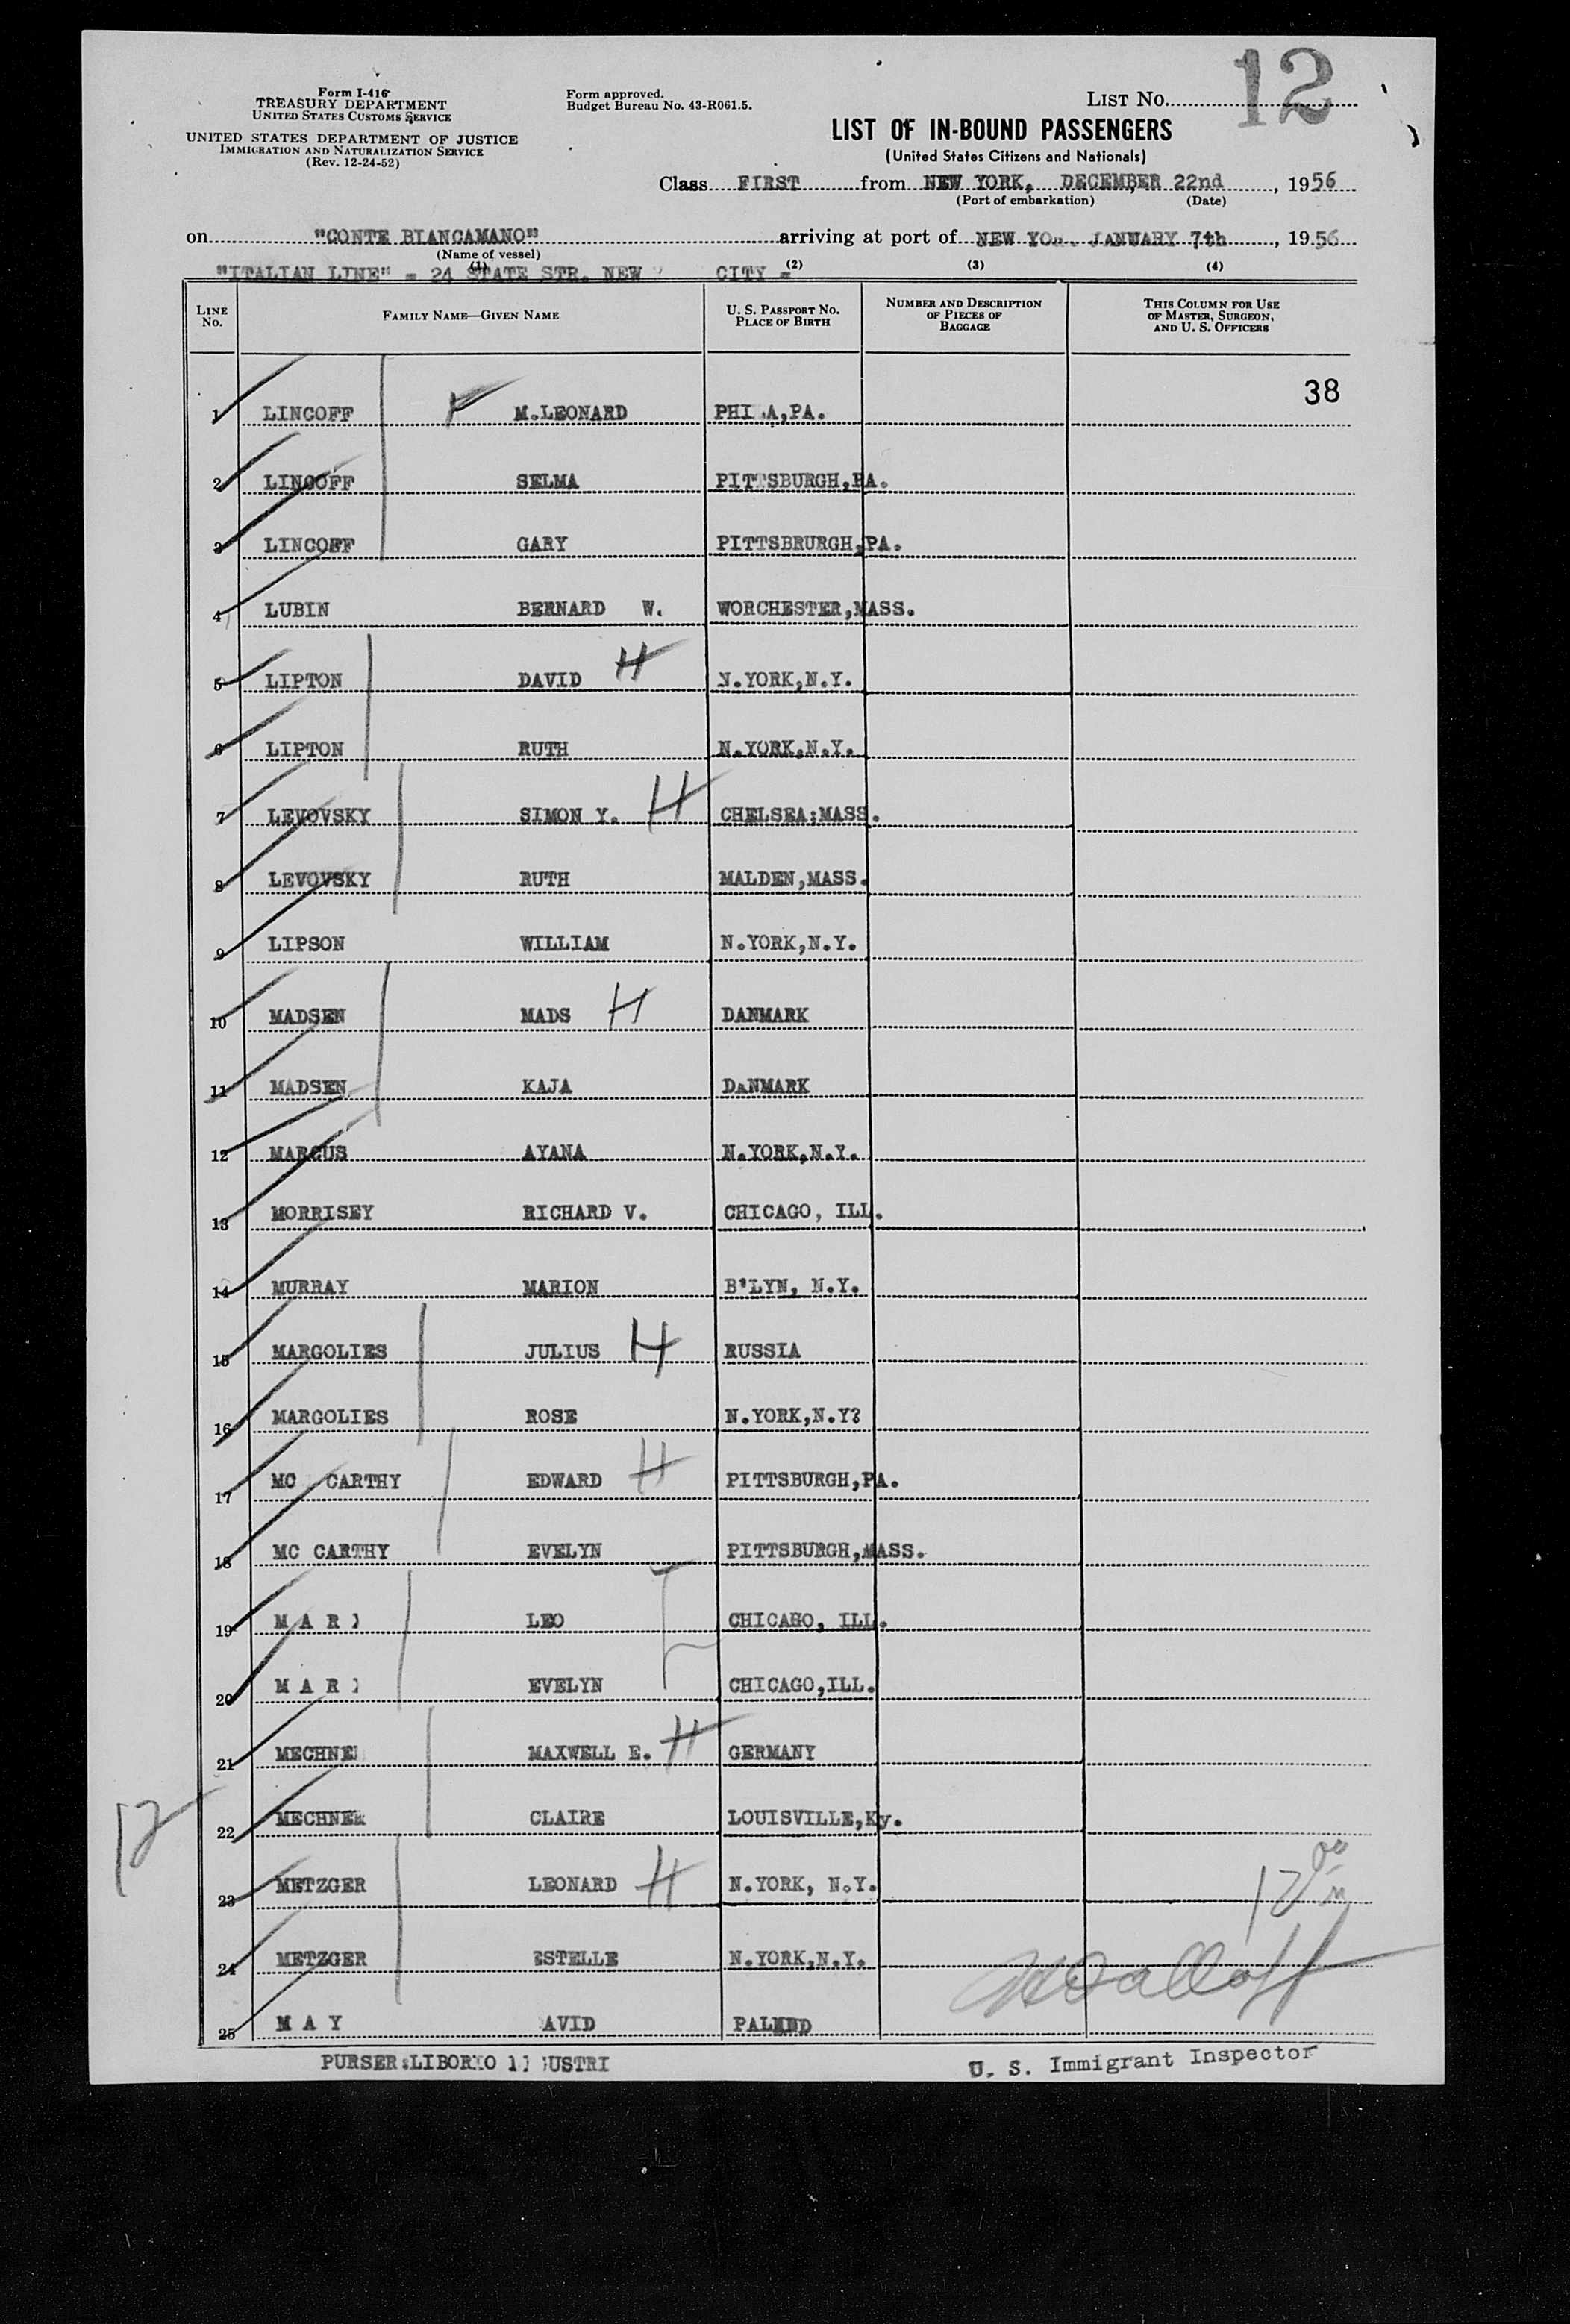 12
Form I-416
TREASURY DEPARTMENT
UNITED STATES CUSTOMS SERVICE
UNITED STATES DEPARTMENT OF JUSTICE
IMMIGRATION AND NATURALIZATION SERVICE
(Rev. 12-24-52)
Form approved.
Budget Bureau No. 43-R061.5.
LIST NO.
LIST OF IN-BOUND PASSENGERS
(United States Citizens and Nationals)
Class FIRST from NEW YORK, DECEMBER 22nd, 1956
(Port of embarkation) (Date)
on "CONTE BIANCAMANO" arriving at port of NEW JANUARY 7th, 1956
(Name of vessel)
(1) (2) (3) (4)
"ITALIAN LINE" = 24 STATE STR. NEW CITY =
LINE No. FAMILY NAME—GIVEN NAME U. S. PASSPORT NO. PLACE OF BIRTH NUMBER AND DESCRIPTION OF PIECES OF BAGGAGE THIS COLUMN FOR USE OF MASTER, SURGEON, AND U. S. OFFICERS
38
1 LINCOFF M.LEONARD PA.
2 LINCOFF SELMA PITTSBURGH,PA.
3 LINCOFF GARY PITTSBRURGH,PA.
4 LUBIN BERNARD W. WORCHESTER,MASS.
5 LIPTON DAVID H N.YORK,N.Y.
6 LIPTON RUTH N.YORK,N.Y.
7 LEVOVSKY SIMON Y. H CHELSEA;MASS.
8 LEVOVSKY RUTH MALDEN,MASS.
9 LIPSON WILLIAM N.YORK,N.Y.
10 MADSEN MADS H DANMARK
11 MADSEN KAJA DANMARK
12 MARCUS AYANA N.YORK,N.Y.
13 MORRISEY RICHARD V. CHICAGO, ILL.
14 MURRAY MARION B'LYN, N.Y.
15 MARGOLIES JULIUS H RUSSIA
16 MARGOLIES ROSE N.YORK,N.Y?
17 MC CARTHY EDWARD H PITTSBURGH,PA.
18 MC CARTHY EVELYN PITTSBURGH,MASS.
19 LEO ILL.
20 EVELYN CHICAGO,ILL.
21 MAXWELL E. H GERMANY
22 MECHNER CLAIRE LOUISVILLE,Ky.
12
23 METZGER LEONARD H N.YORK, N.Y.
24 METZGER ESTELLE N.YORK,N.Y.
25 M A Y
PURSER:LIBORIO
U. S. Immigrant Inspector